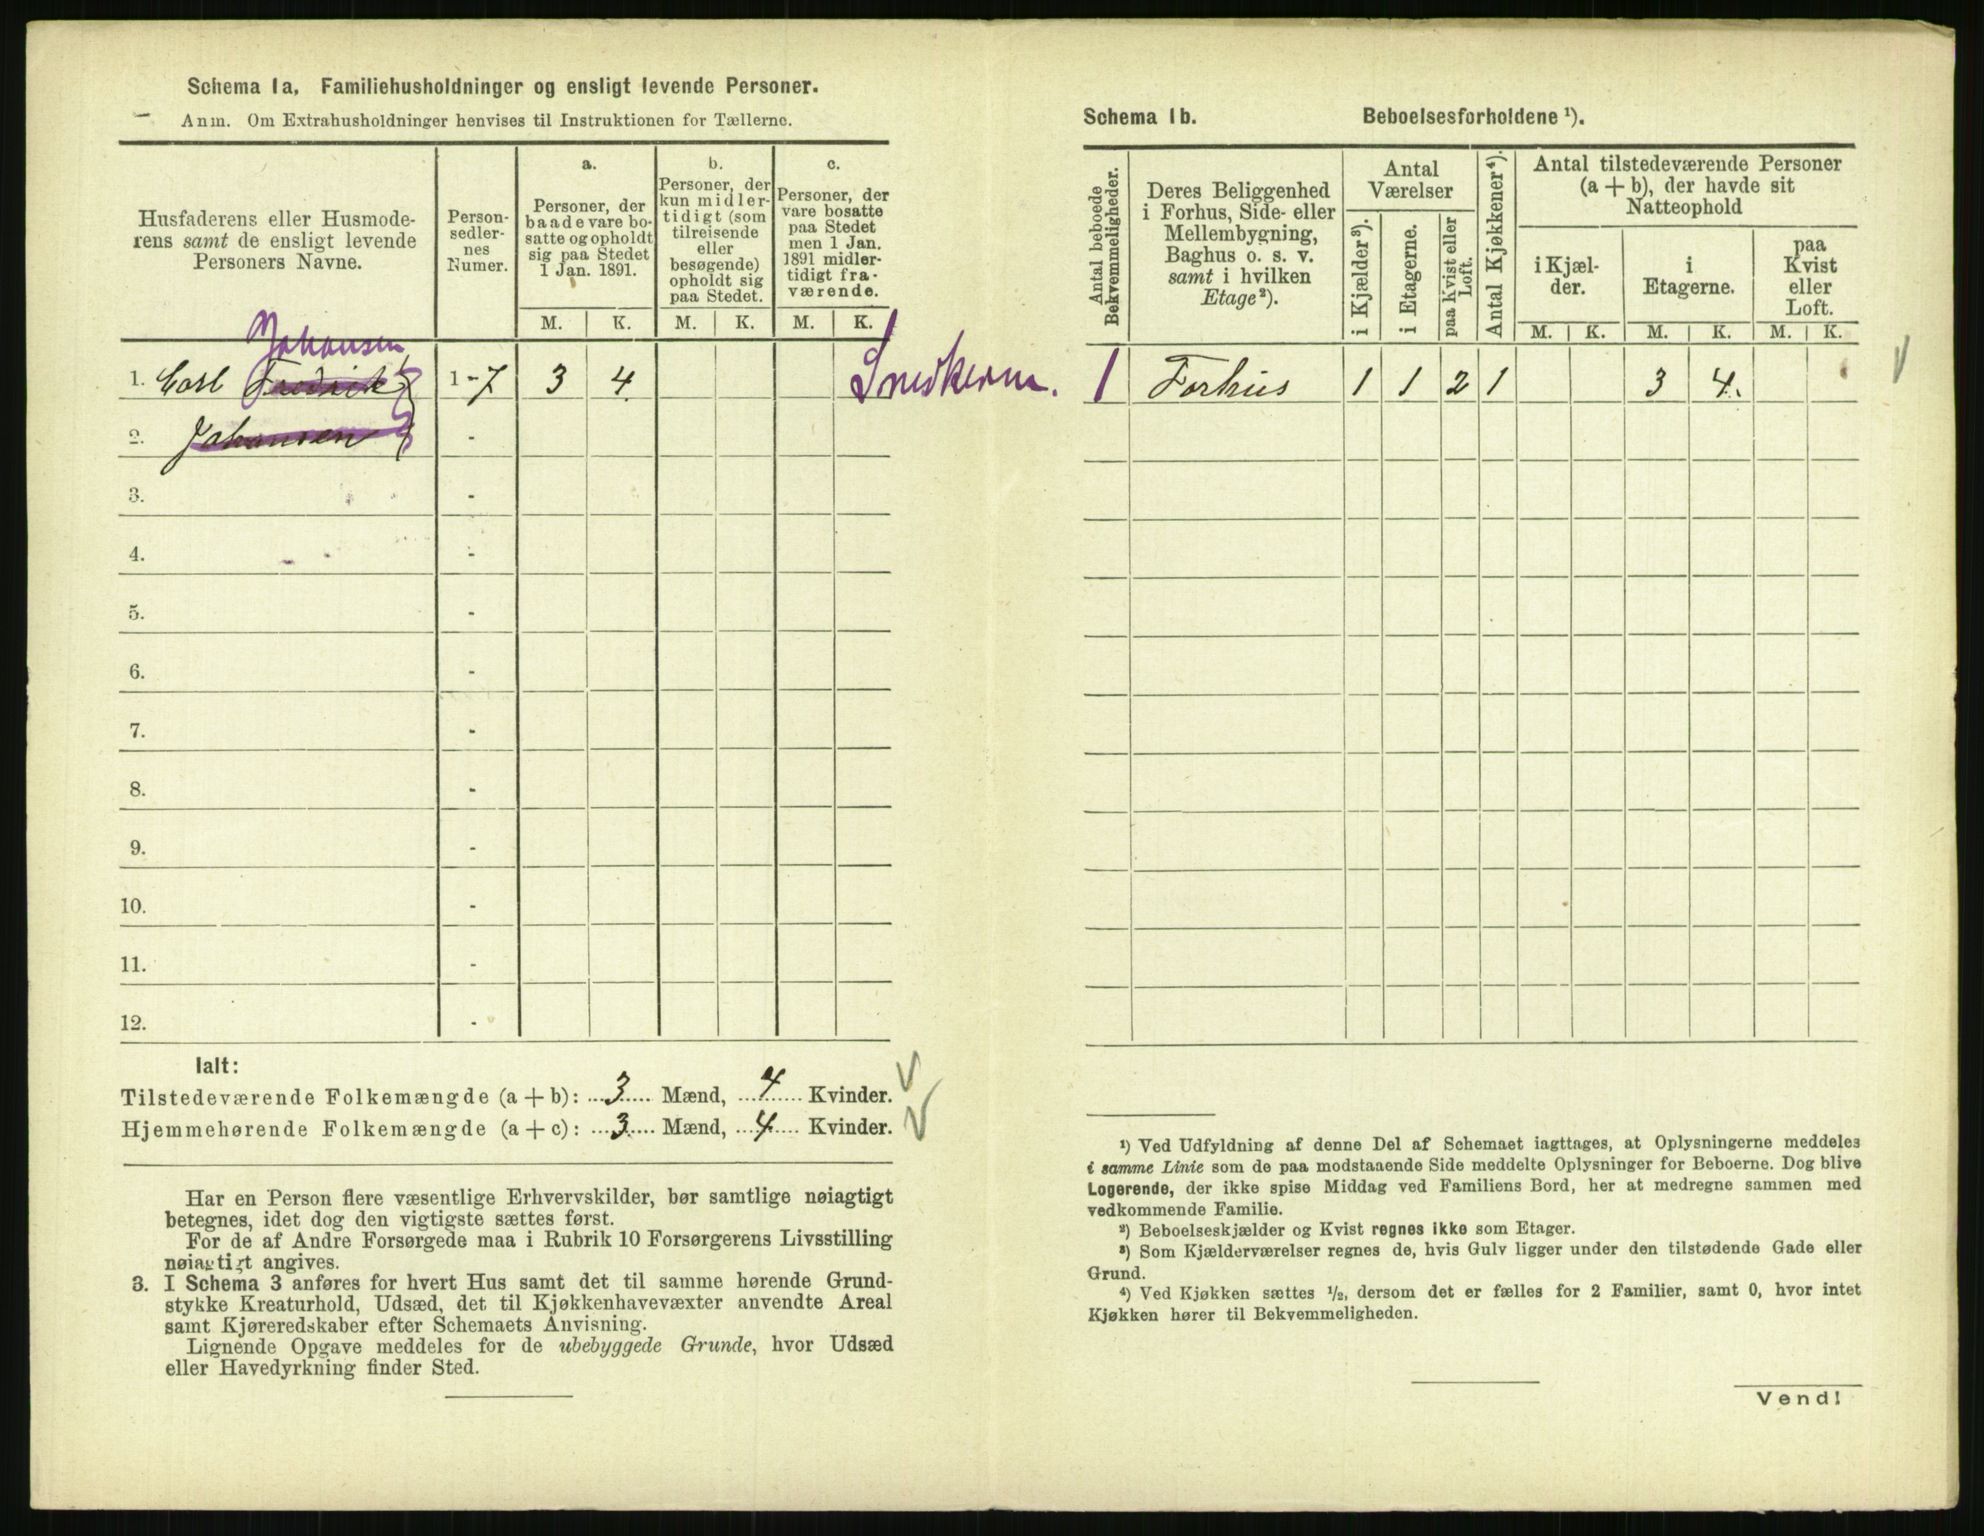 Schema 1a. Familiehusholdninger og ensligt levende Personer.
Anm. Om Extrahusholdninger henvises til Instruktionen for Tællerne.
Husfaderens eller Husmode-
rens samt de ensligt levende
Personers Navne.
Person-
sedler-
nes
Numer.
a.
Personer, der
baade vare bo-
satte og opholdt
sig paa Stedet
1 Jan. 1891.
b.
Personer, der
kun midler-
tidigt (som
tilreisende
eller
besøgende)
opholdt sig
paa Stedet.
c.
Personer, der
vare bosatte
paa Stedet
men 1 Jan.
1891 midler-
tidigt fra-
værende.
M. K. M. K. M. K.
Johansen
1. Carl Fredrik 1-7 3 4
2. Johansen -
3. -
4. -
5. -
6. -
7. -
8. -
9. -
10. -
11. -
12. -
Ialt:
Tilstedeværende Folkemængde (a + b): 3 Mænd, 4 Kvinder.
Hjemmehørende Folkemængde (a + c): 3 Mænd, 4 Kvinder.
Har en Person flere væsentlige Erhvervskilder, bør samtlige nøiagtigt
betegnes, idet dog den vigtigste sættes først.
For de af Andre Forsørgede maa i Rubrik 10 Forsørgerens Livsstilling
nøiagtigt angives.
3. I Schema 3 anføres for hvert Hus samt det til samme hørende Grund-
stykke Kreaturhold, Udsæd, det til Kjøkkenhavevæxter anvendte Areal
samt Kjøreredskaber efter Schemaets Anvisning.
Lignende Opgave meddeles for de ubebyggede Grunde, hvor Udsæd
eller Havedyrkning finder Sted.
Schema 1b. Beboelsesforholdene ¹).
Antal beboede
Bekvemmeligheder.
Deres Beliggenhed
i Forhus, Side- eller
Mellembygning,
Baghus o. s. v.
samt i hvilken
Etage²).
Antal
Værelser
i Kjælder³).
i Etagerne.
paa Kvist eller
Loft.
Antal Kjøkkener⁴).
Antal tilstedeværende Personer
(a + b), der havde sit
Natteophold
i Kjæl-
der.
i
Etagerne.
paa
Kvist
eller
Loft.
M. K. M. K. M. K.
1 Forhus 1 1 2 1 3 4.
¹) Ved Udfyldning af denne Del af Schemaet iagttages, at Oplysningerne meddeles
i samme Linie som de paa modstaaende Side meddelte Oplysninger for Beboerne. Dog blive
Logerende, der ikke spise Middag ved Familiens Bord, her at medregne sammen med
vedkommende Familie.
²) Beboelseskjælder og Kvist regnes ikke som Etager.
³) Som Kjælderværelser regnes de, hvis Gulv ligger under den tilstødende Gade eller
Grund.
⁴) Ved Kjøkken sættes ½, dersom det er fælles for 2 Familier, samt 0, hvor intet
Kjøkken hører til Bekvemmeligheden.
Vend!